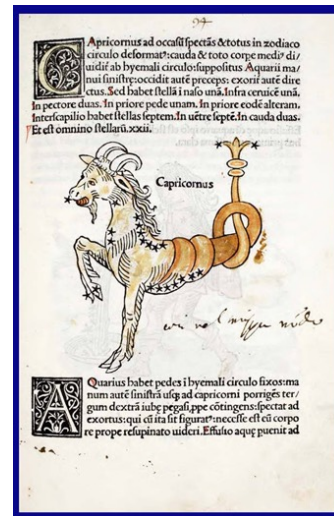 Capricornus ad occasū spectās & totus in zodiaco
circulo deformatꝰ: cauda & toto corpe mediꝰ di/
uidiť ab hyemali circulo: suppositus Aquarii ma/
nui sinistrę: occidit autē preceps: exoriť autē dire
ctus. Sed habet stellā ī naso unā. Infra ceruicē unā.
In pectore duas. In priore pede unam. In priore eodē alteram.
Interscapilio habet stellas septem. In uētre septē. In cauda duas.
Et est omnino stellarū. xxii.
Capricornus
Aquarius habet pedes ī hyemali circulo fixos: ma
num autē sinistrā usqꝫ ad capricorni porrigēs ter/
gum dextrā iubę pegasi, ppe cōtingens: spectat ad
exortus: qui cū ita sit figuratꝰ: necesse est cū corpo
re prope resupinato uideri. Effusio aquę puenit ad